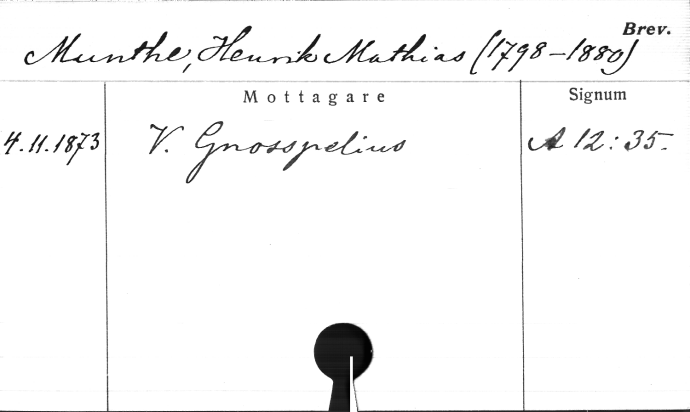 Brev.
Munthe, Henrik Mathias (1798-1880)
Mottagare Signum
4.11.1873 V. Gnosspelius A 12:35.